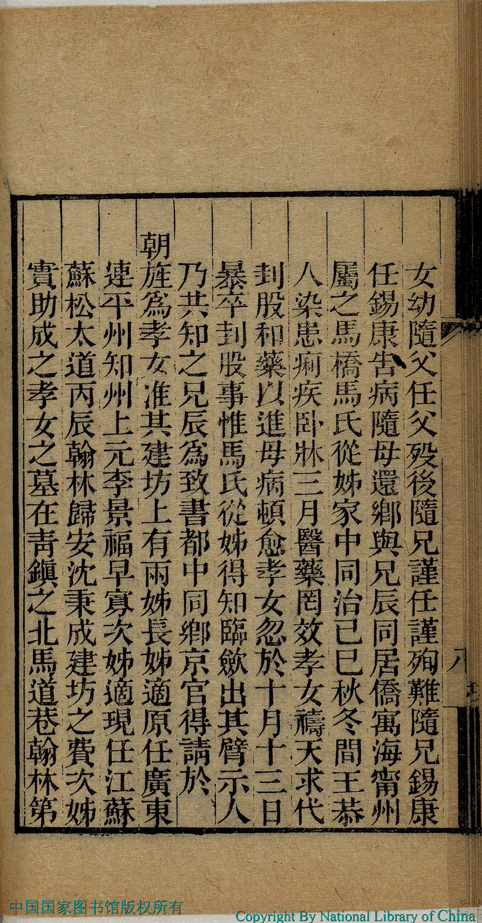 女幼隨父任父歿後隨兄謹任謹殉難隨兄錫康
任錫康吿病隨母還鄉與兄辰同居僑寓海甯州
屬之馬橋馬氏從姊家中同治己巳秋冬間王恭
人染患痢疾卧牀三月醫藥罔效孝女禱天求代
刲股和藥以進母病頓愈孝女忽於十月十三日
暴卒刲股事惟馬氏從姊得知臨歛出其臂示人
乃共知之兄辰爲致書都中同鄉京官得請於
朝旌爲孝女准其建坊上有兩姊長姊適原任廣東
連平州知州上元李景福早寡次姊適現任江蘇
蘇松太道丙辰翰林歸安沈秉成建坊之費次姊
實助成之孝女之墓在靑鎭之北馬道巷翰林第
八
中国国家图书馆版权所有
Copyright By National Library of China